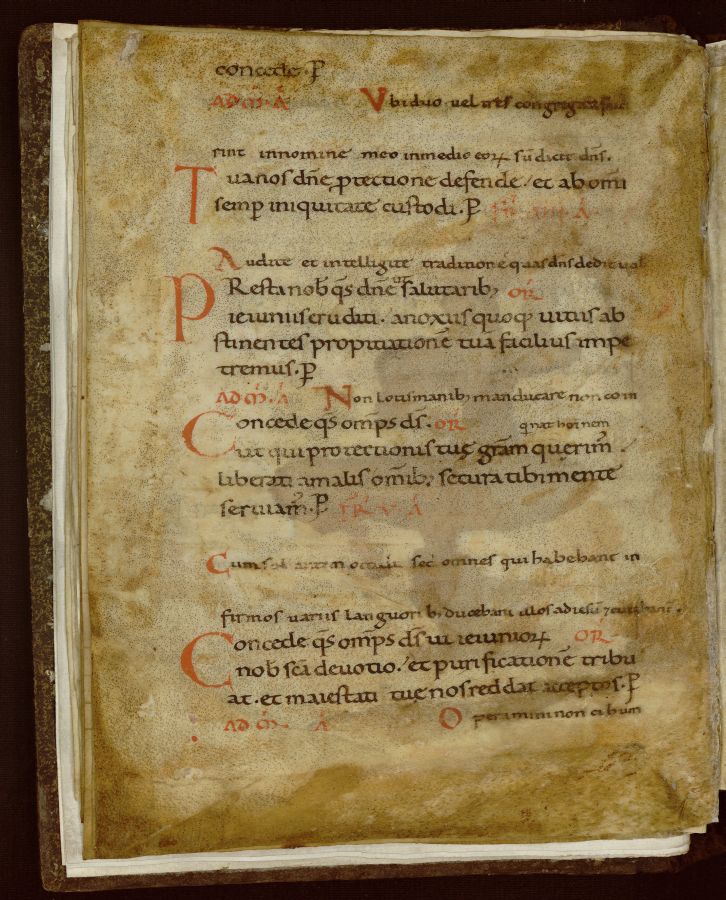 concede. P
AD M̄. A Vbi duo vel tres congregati fue
rint in nomine meo in medio eoꝝ su̅ dicit dn̅s.
Tua nos dn̅e ꝓtectione defende. et ab om̅i
semꝑ iniquitate custodi. P
Audite et intelligite traditione̅ quas dn̅s dedit
Presta nob̅ qs̅ dn̅e salutarib; OR̅
ieiuniis eruditi. a noxiis quoq; vitiis ab
stinentes propitiatione̅ tua̅ facilius impe
tremus. P
AD M̄. A Non lotis manib; manducare non coin
Concede qs̅ om̅ps ds̅. OR̅ quinat homine̅
ut qui protectionis tuę gr̅am querim̅.
liberati a malis om̅ib; secura tibi mente
seruiam̅. P
Cum sol autem set omnes qui habebant in
firmos variis languorib; ducebant illos ad iesu̅ ⁊ curabant.
Concede qs̅ om̅ps ds̅ ut ieiunioꝝ OR̅
nob̅ sc̅a devotio. et purificatione̅ tribu
at. et maiestati tuę nos reddat acceptos. P
AD M̄ A Operamini non cibum